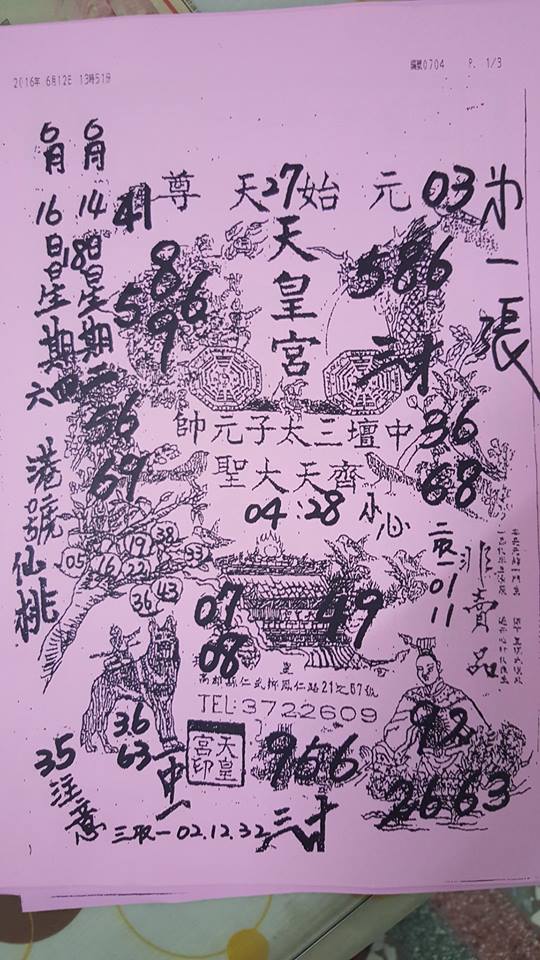 2016年 6月12日 13時51分
編號0704 P. 1/3
6月14日星期二
6月16日星期四
18
六
港號
仙桃
第一張
元始天尊
27
03
41
天皇宮
8
5 6
9
586
三才
56
69
中壇三太子元帥
36
68
齊天大聖
04:28 小心
38
19
33
05 16 22
36 43
二取一 01 11
非賣品
07
08
49
高雄縣仁武鄉鳳仁路21之57號
TEL:3722609
36
63
一中一
天皇宮印
956
三才
92
2663
35 注意
三取一 02.12.32